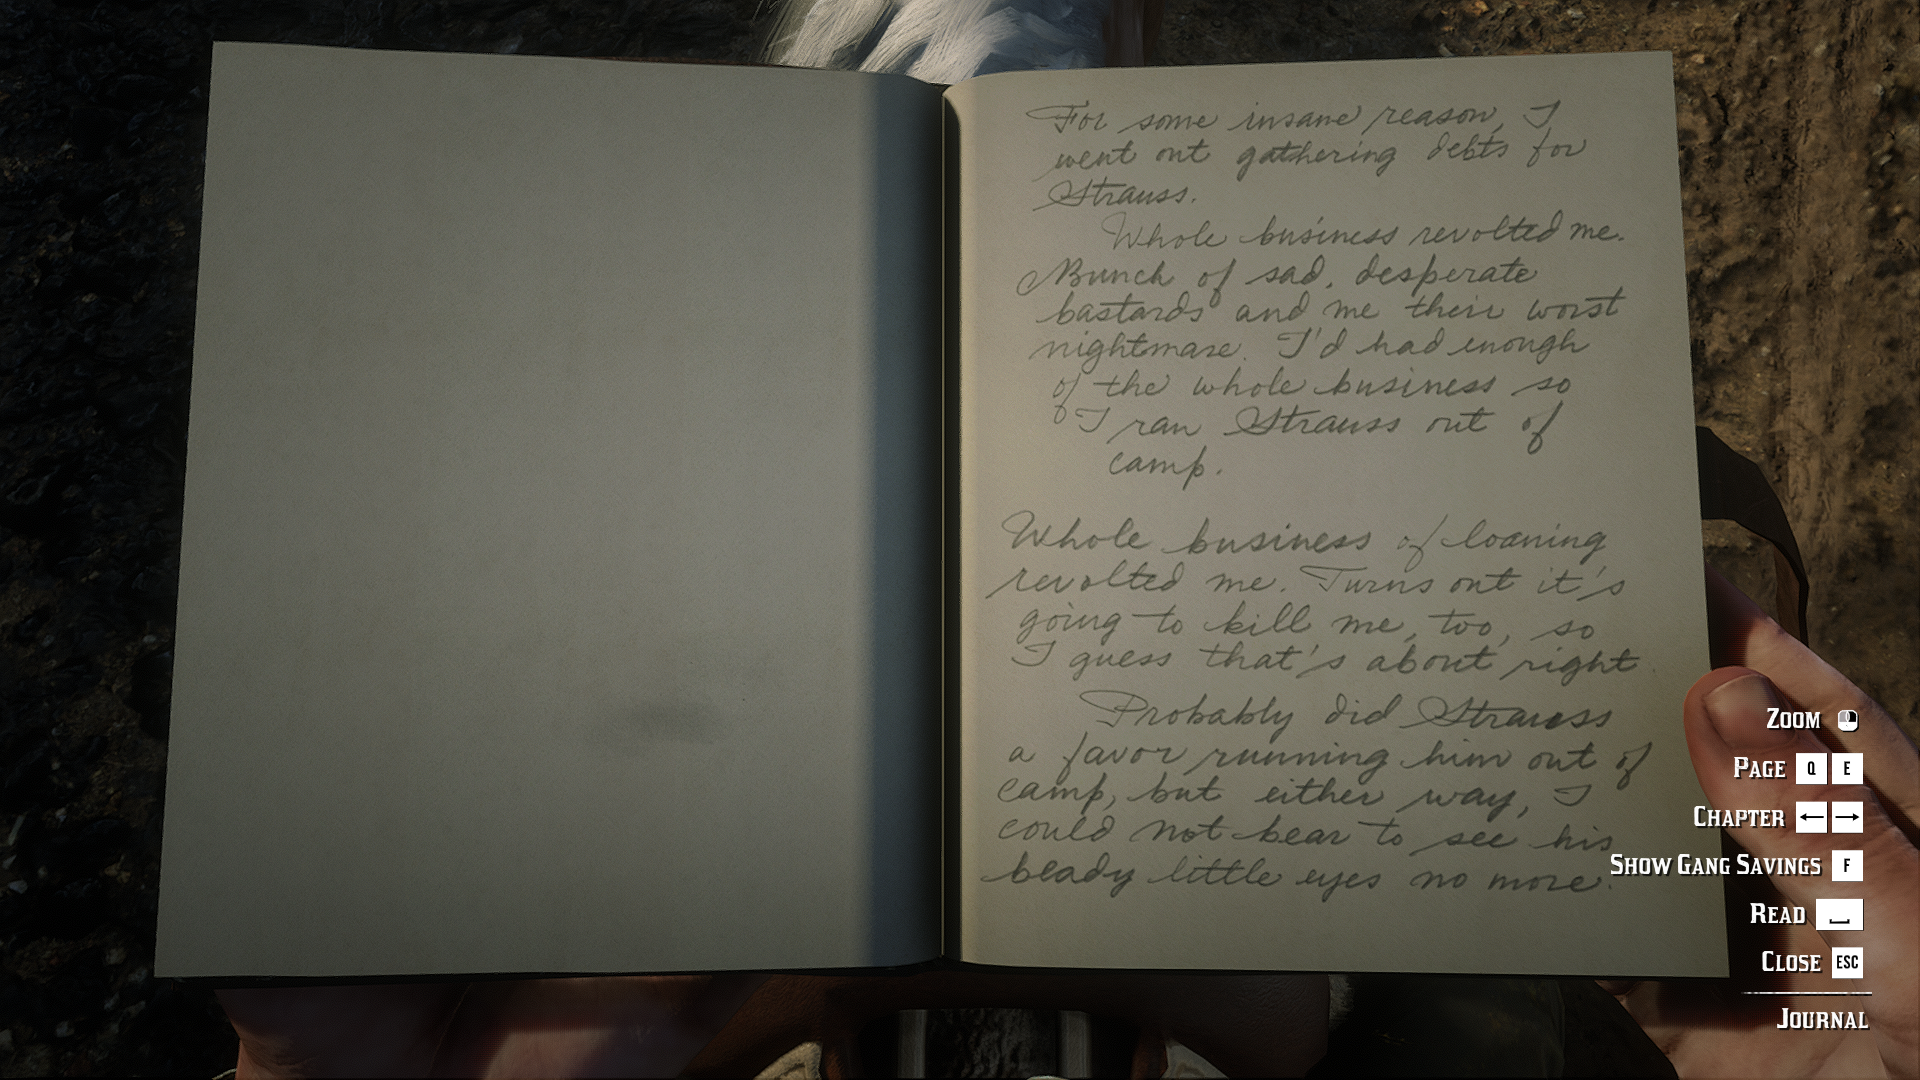 For some insane reason, I
went out gathering debts for
Strauss.
Whole business revolted me.
Bunch of sad, desperate
bastards and me their worst
nightmare. I'd had enough
of the whole business so
I ran Strauss out of
camp.
Whole business of loaning
revolted me. Turns out it's
going to kill me, too, so
I guess that's about right
Probably did Strauss
a favor running him out of
camp, but either way, I
could not bear to see his
beady little eyes no more.
ZOOM
PAGE Q E
CHAPTER ← →
SHOW GANG SAVINGS F
READ
CLOSE ESC
JOURNAL